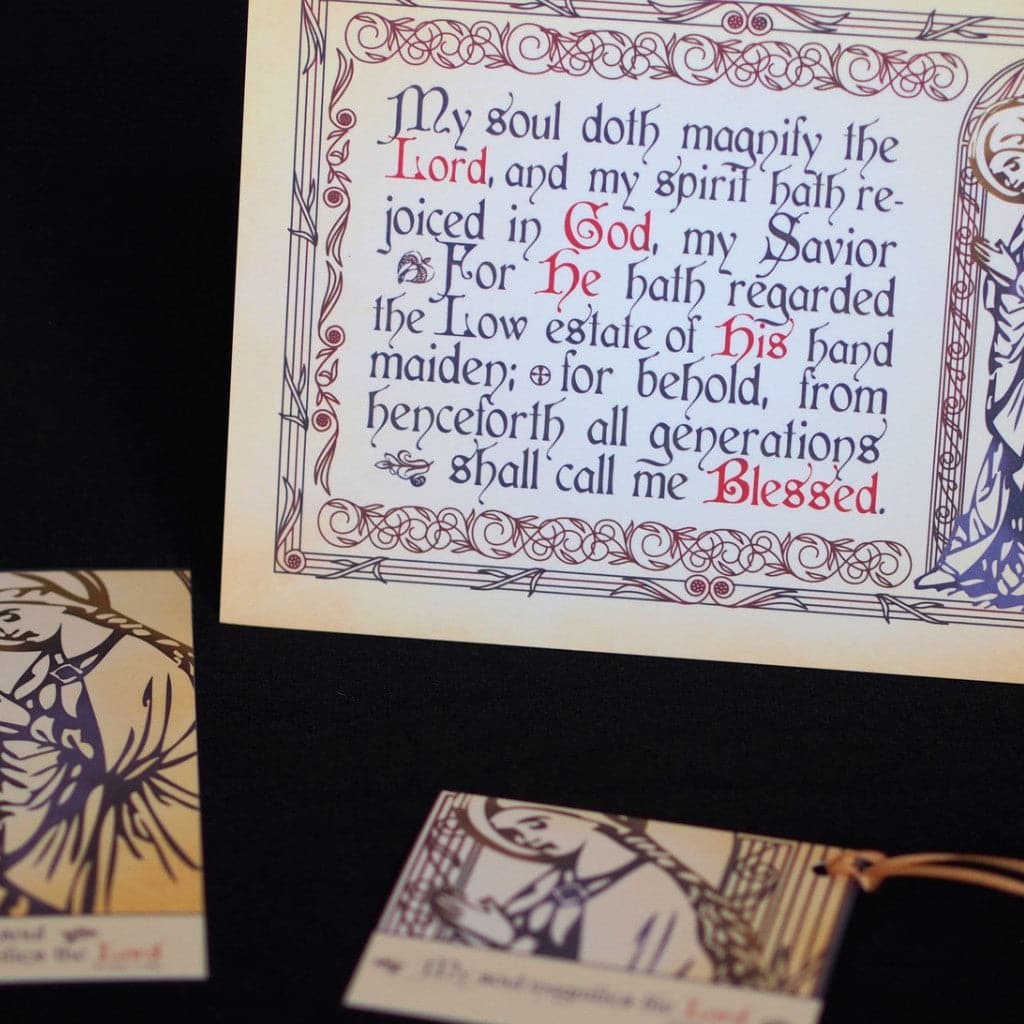 My soul doth magnify the
Lord, and my spirit hath re-
joiced in God, my Savior
For He hath regarded
the Low estate of His hand
maiden; for behold, from
henceforth all generations
shall call me Blessed.
the Lord
My soul magnifies the Lord